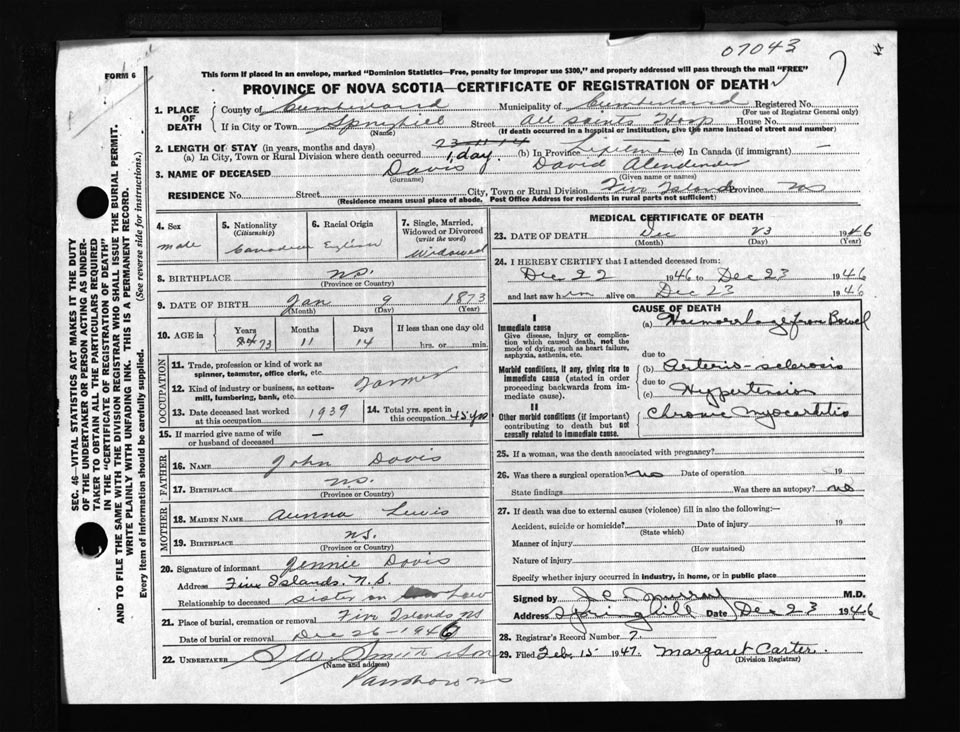 07043
FORM 6
This form if placed in an envelope, marked "Dominion Statistics—Free, penalty for improper use $300," and properly addressed will pass through the mail "FREE"
PROVINCE OF NOVA SCOTIA—CERTIFICATE OF REGISTRATION OF DEATH
1. PLACE OF DEATH County of Cumberland Municipality of Cumberland Registered No.
(For use of Registrar General only)
If in City or Town Springhill Street All Saints Hosp House No.
(Name) (If death occurred in a hospital or institution, give the name instead of street and number)
2. LENGTH OF STAY (in years, months and days) 23-11-14
(a) In City, Town or Rural Division where death occurred 1 day. (b) In Province Lifetime (c) In Canada (if immigrant) —
3. NAME OF DECEASED Davis David
(Surname) (Given name or names)
RESIDENCE No. Street City, Town or Rural Division Five Islands Province NS
(Residence means usual place of abode. Post Office Address for residents in rural parts not sufficient)
4. Sex male
5. Nationality (Citizenship) Canadian
6. Racial Origin English
7. Single, Married, Widowed or Divorced (write the word) Widowed
8. BIRTHPLACE NS.
(Province or Country)
9. DATE OF BIRTH Jan 9 1873
(Month) (Day) (Year)
10. AGE in Years Months Days If less than one day old
73 11 14 hrs. or min.
OCCUPATION
11. Trade, profession or kind of work as spinner, teamster, office clerk, etc.
12. Kind of industry or business, as cotton-mill, lumbering, bank, etc. Farmer
13. Date deceased last worked at this occupation 1939
14. Total yrs. spent in this occupation 45 yrs
15. If married give name of wife or husband of deceased —
FATHER
16. NAME John Davis
17. BIRTHPLACE NS.
(Province or Country)
MOTHER
18. MAIDEN NAME Lewis
19. BIRTHPLACE NS.
(Province or Country)
20. Signature of informant Jennie Davis
Address Five Islands. N.S.
Relationship to deceased sister in law
21. Place of burial, cremation or removal Five Islands NS
Date of burial or removal Dec 26 - 1946
22. UNDERTAKER Smith & Son
(Name and address)
Parrsboro NS
MEDICAL CERTIFICATE OF DEATH
23. DATE OF DEATH Dec 23 1946
(Month) (Day) (Year)
24. I HEREBY CERTIFY that I attended deceased from:
Dec 22 1946 to Dec 23 1946
and last saw him alive on Dec 23 1946
CAUSE OF DEATH
I
Immediate cause
Give disease, injury or complication which caused death, not the mode of dying, such as heart failure, asphyxia, asthenia, etc.
(a) Haemorrhage from Bowel
due to
Morbid conditions, if any, giving rise to immediate cause (stated in order proceeding backwards from immediate cause).
(b) Arterio-sclerosis
due to
(c) Hypertension
II
Other morbid conditions (if important) contributing to death but not causally related to immediate cause.
Chronic Myocarditis
25. If a woman, was the death associated with pregnancy?
26. Was there a surgical operation? no Date of operation 19
State findings Was there an autopsy? no
27. If death was due to external causes (violence) fill in also the following:—
Accident, suicide or homicide? Date of injury 19
(State which)
Manner of injury
(How sustained)
Nature of injury
Specify whether injury occurred in industry, in home, or in public place
Signed by Murray M.D.
Address Springhill Date Dec 23 1946
28. Registrar's Record Number 7.
29. Filed Feb. 15 1947. Margaret Carter.
(Division Registrar)
SEC. 46—VITAL STATISTICS ACT MAKES IT THE DUTY
OF THE UNDERTAKER OR PERSON ACTING AS UNDER-
TAKER TO OBTAIN ALL THE PARTICULARS REQUIRED
IN THE "CERTIFICATE OF REGISTRATION OF DEATH"
AND TO FILE THE SAME WITH THE DIVISION REGISTRAR WHO SHALL ISSUE THE BURIAL PERMIT.
WRITE PLAINLY WITH UNFADING INK. THIS IS A PERMANENT RECORD.
Every item of information should be carefully supplied. (See reverse side for instructions.)